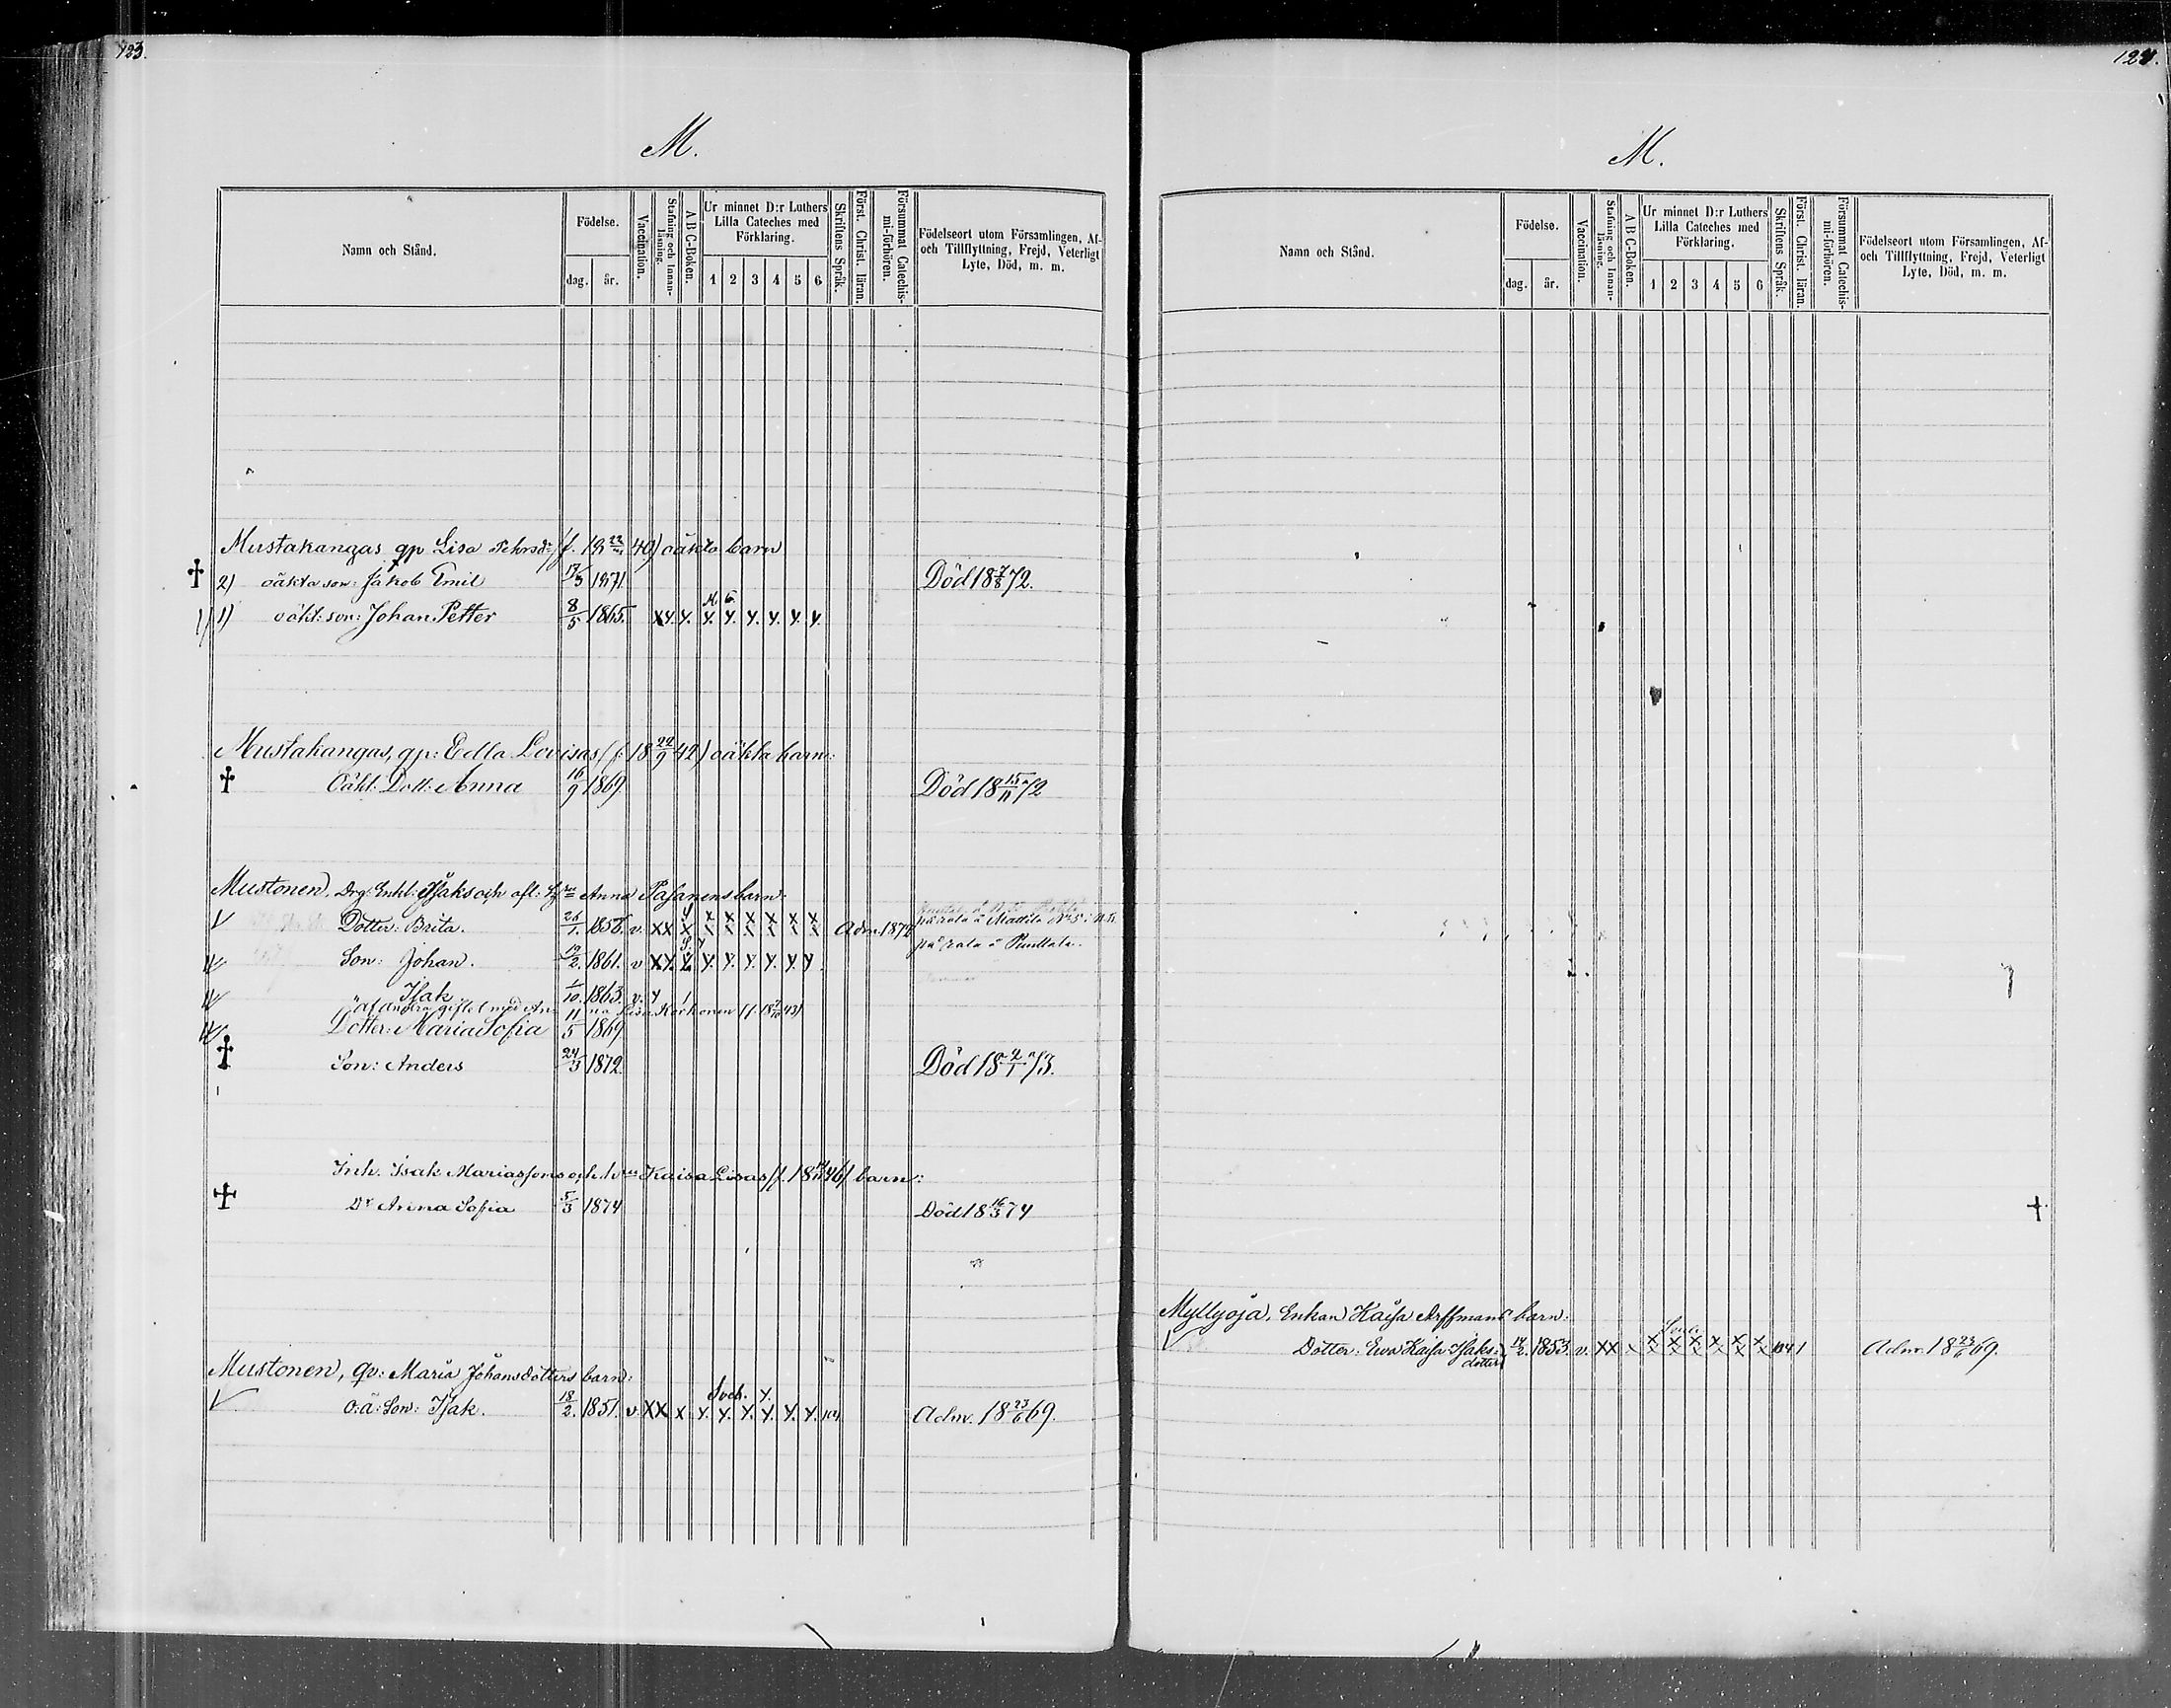 123.
M.
Namn och Stånd.
Födelse.
dag.
år.
Vaccination.
Stafning och Innan-läsning.
A B C-Boken.
Ur minnet D:r Luthers
Lilla Cateches med
Förklaring.
1 2 3 4 5 6
Skriftens Språk.
Först. Christ. läran.
Försummat Catechis-mi-förhören.
Födelseort utom Församlingen, Af-
och Tillflyttning, Frejd, Veterligt
Lyte, Död, m. m.
Mustakangas qp Lisa Pehrsd:s (f. 18 23/ 40) oäkta barn
† 2) oäkta son: Jakob Emil 17/3 1871. Död 18 7/8 72.
1) oäkt: son: Johan Petter 8/5 1865. x y. y. y. y. y. y. y. y.
Mustakangas, qp: Edla Lovisas (f. 18 22/9 42) oäkta barn:
† Oäkt: Dott: Anna 16/9 1869 Död 18 15/11 72
Mustonen, Drg: Enkl: Isaks och afl: Hu Anna Pasanens barn:
V Dotter: Brita. 26/1. 1858. v. x x x x x x x x x Adm. 1872
Son: Johan. 12/2. 1861. v x y. y. y. y. y. y. y.
Isak 1/10. 1863. v. y 1
af andra giftet med Anna Lisa Korhonen
Dotter: Maria Sofia 11/5 1869
† Son: Anders 24/3 1872. Död 18 2/1 73.
Inh. Isak Mariassons och h. hus Kaisa Lisas (f. 18 46) barn:
† Dr Anna Sofia 5/3 1874 Död 18 16/3 74
Mustonen, Qv: Maria Johansdotters barn:
V o: ä: Son: Isak. 18/2. 1851. v. x x x y. y. y. y. y. y. Adm. 18 23/6 69.
124.
M.
Namn och Stånd.
Födelse.
dag.
år.
Vaccination.
Stafning och Innan-läsning.
A B C-Boken.
Ur minnet D:r Luthers
Lilla Cateches med
Förklaring.
1 2 3 4 5 6
Skriftens Språk.
Först. Christ. läran.
Försummat Catechis-mi-förhören.
Födelseort utom Församlingen, Af-
och Tillflyttning, Frejd, Veterligt
Lyte, Död, m. m.
†
Myllyoja, Enkan Kaisa Arffmans barn:
V Dotter: Eva Kaisa Isaks: 14/2. 1853. v. x x x x x x x x x Adm. 18 23/6 69.
dotter